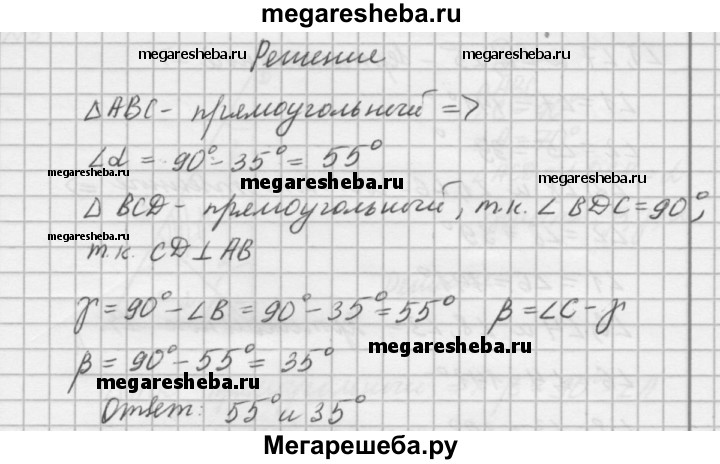 megaresheba.ru
Решение
megaresheba.ru megaresheba.ru
△ABC - прямоугольный =>
∠α = 90° - 35° = 55°
megaresheba.ru megaresheba.ru
△ BCD - прямоугольный, т.к. ∠ BDC = 90°,
megaresheba.ru
т.к. CD ⊥ AB
γ = 90° - ∠B = 90° - 35° = 55° β = ∠C - γ
megaresheba.ru
β = 90° - 55° = 35°
megaresheba.ru
Ответ: 55° и 35°
Мегарешеба.ру